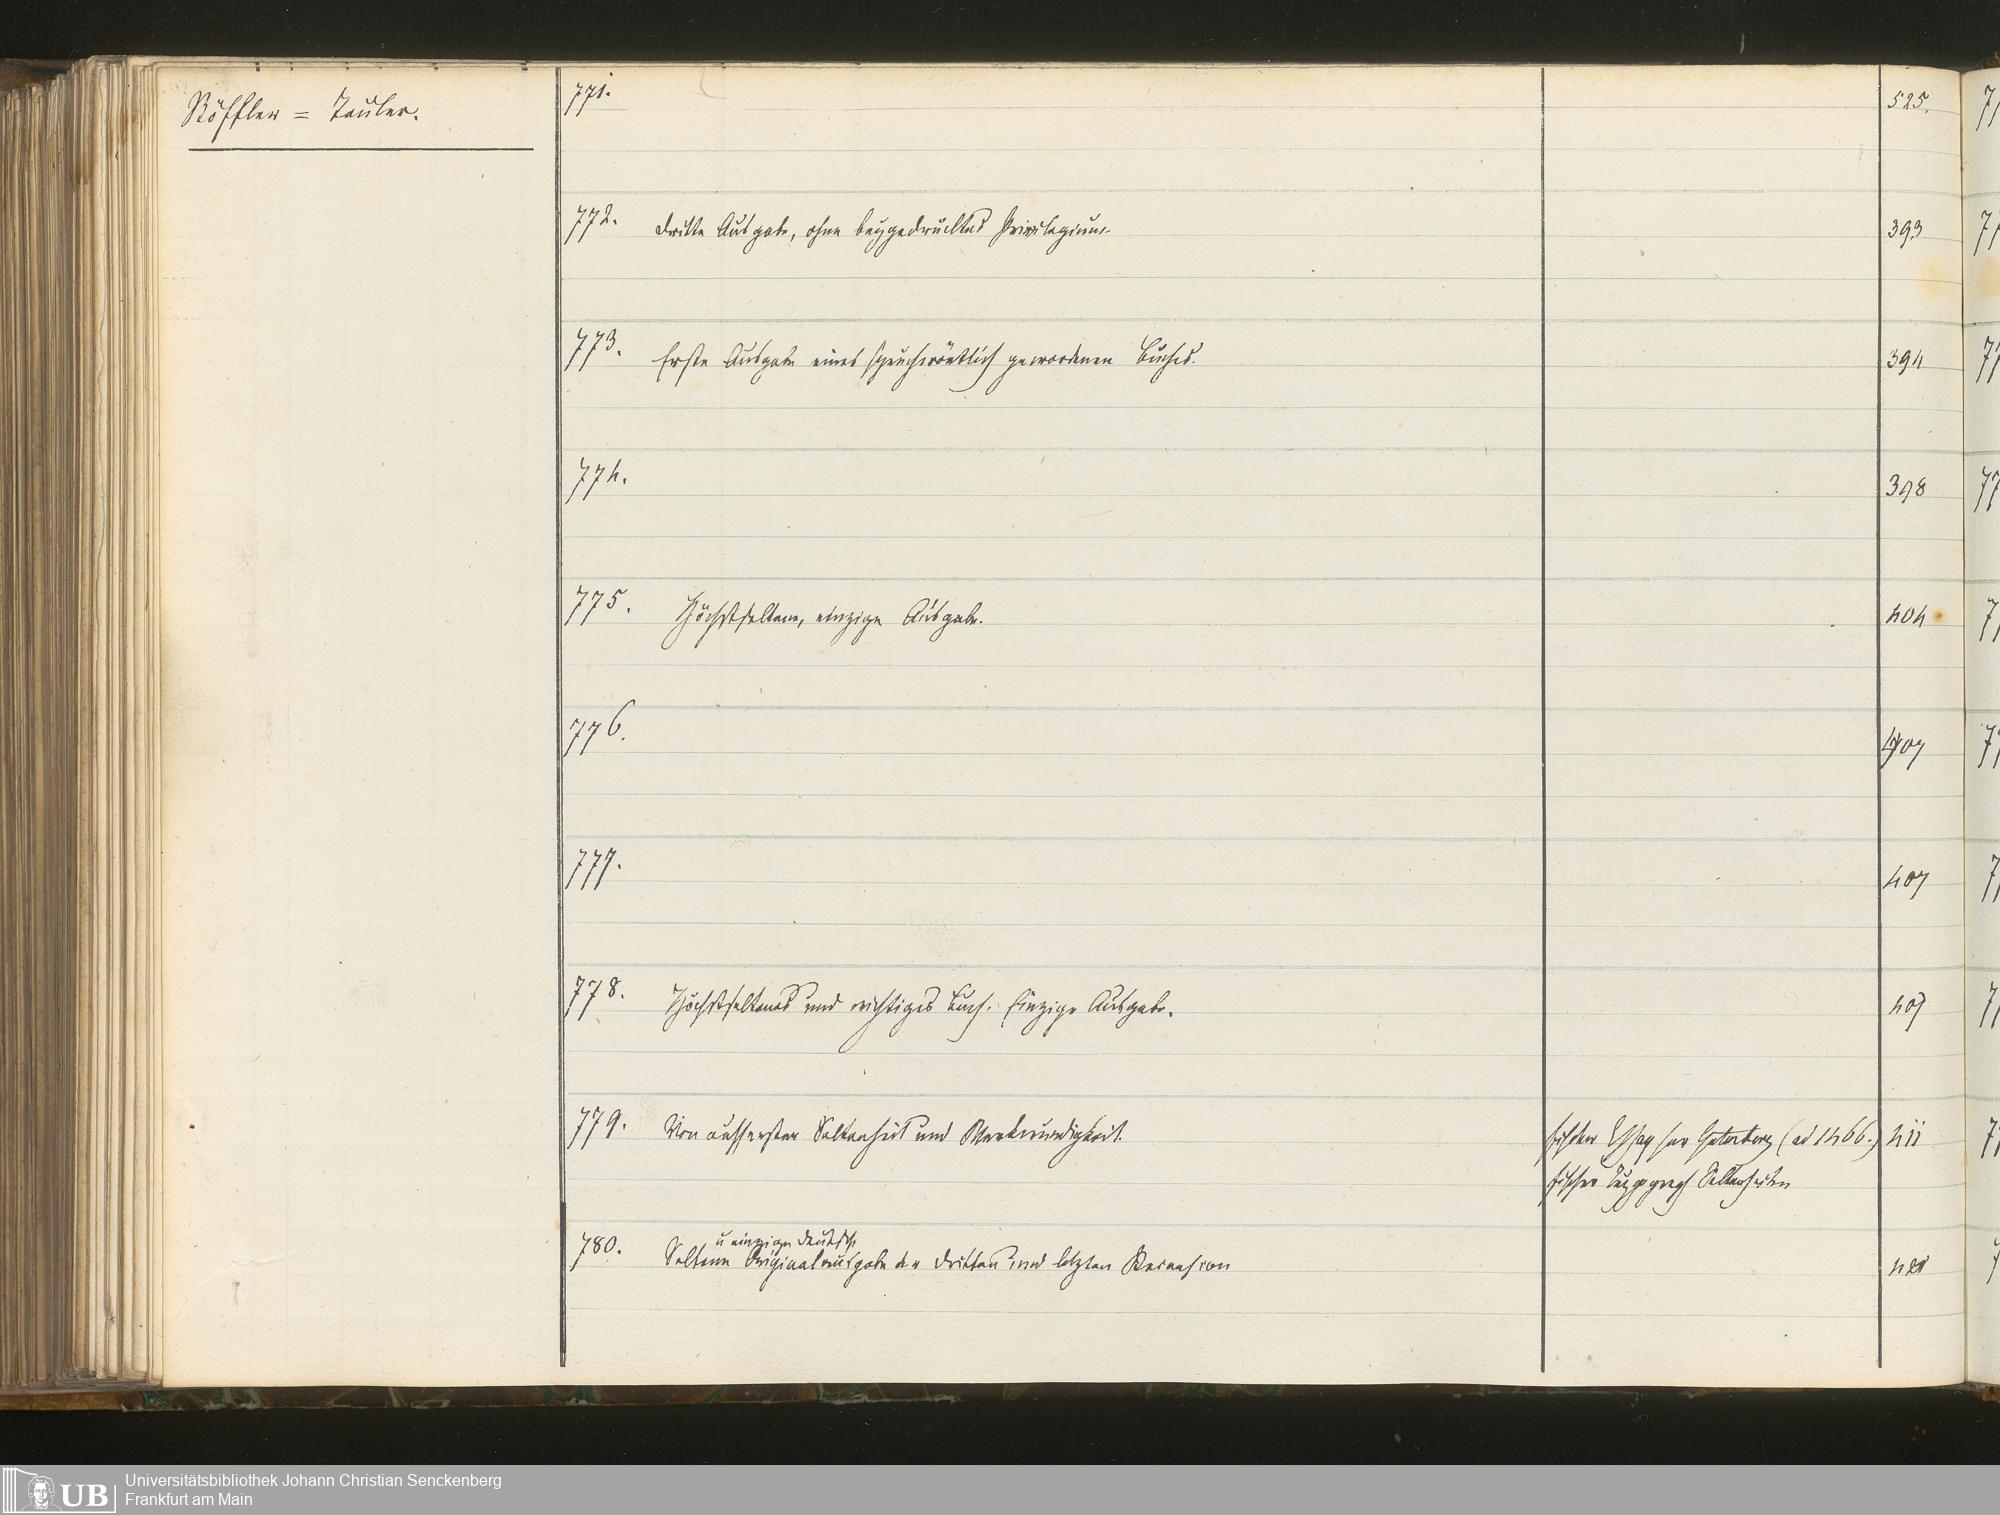 Stöffler = Tauler.
771. 525.
772. Dritte Ausgabe, ohne beygedrucktes Privilegium. 393
773. Erste Ausgabe eines sprüchwörtlich gewordenen Buches. 394
774. 398
775. Höchstseltene, einzige Ausgabe. 404
776. 407
777. 407
778. Höchstseltenes und wichtiges Buch. Einzige Ausgabe. 407
779. Von äusserster Seltenheit und Merkwürdigkeit. Fischer Essay sur Gutenberg (ad 1466.) 411
Fischer Typogr. Seltenheiten
u einzige deutsche
780. Seltene Originalausgabe der dritten und letzten Recension
Universitätsbibliothek Johann Christian Senckenberg
Frankfurt am Main
UB